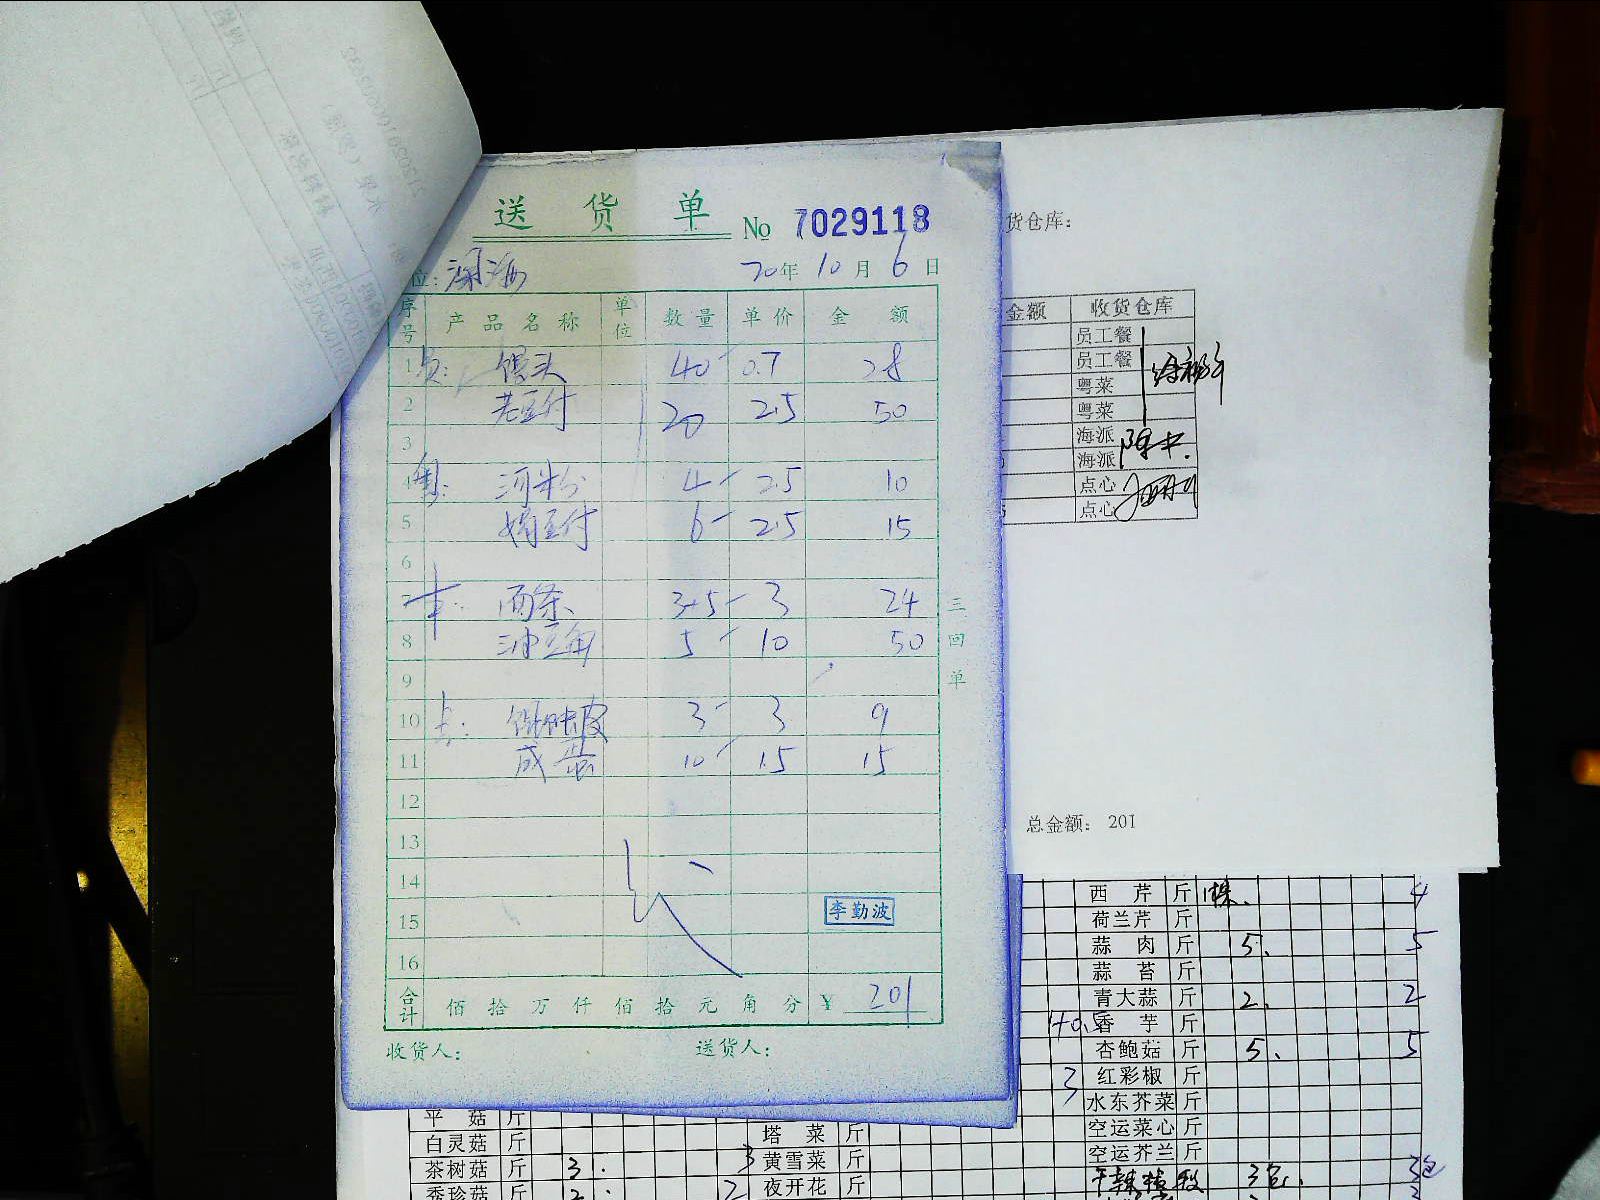 送货单 No 7029118
位: 澜海 20年10月6日
序号 产品名称 单位 数量 单价 金额
1 员: 馒头 40 0.7 28
2 老豆付 20 2.5 50
3
4 粤: 河粉 4 2.5 10
5 嫩豆付 6 2.5 15
6
7 面条 3+5 3 24
8 油豆角 5 10 50
9
10 点: 馄吨皮 3 3 9
11 咸蛋 10 1.5 15
12
13
14
15 李勤波
16
合计 佰拾万仟佰拾元角分 ¥ 201
收货人: 送货人:
三回单
货仓库:
金额 收货仓库
员工餐
员工餐
粤菜
粤菜
海派
海派
点心
点心
总金额: 201
西芹 斤 1株. 4
荷兰芹 斤
蒜肉 斤 5. 5
蒜苔 斤
青大蒜 斤 2. 2
香芋 斤
杏鲍菇 斤 5. 5
3 红彩椒 斤
水东芥菜 斤
空运菜心 斤
空运芥兰 斤
3包. 3包
平菇 斤
白灵菇 斤
茶树菇 斤 3.
秀珍菇 斤 2.
塔菜 斤
3 黄雪菜 斤
2 夜开花 斤